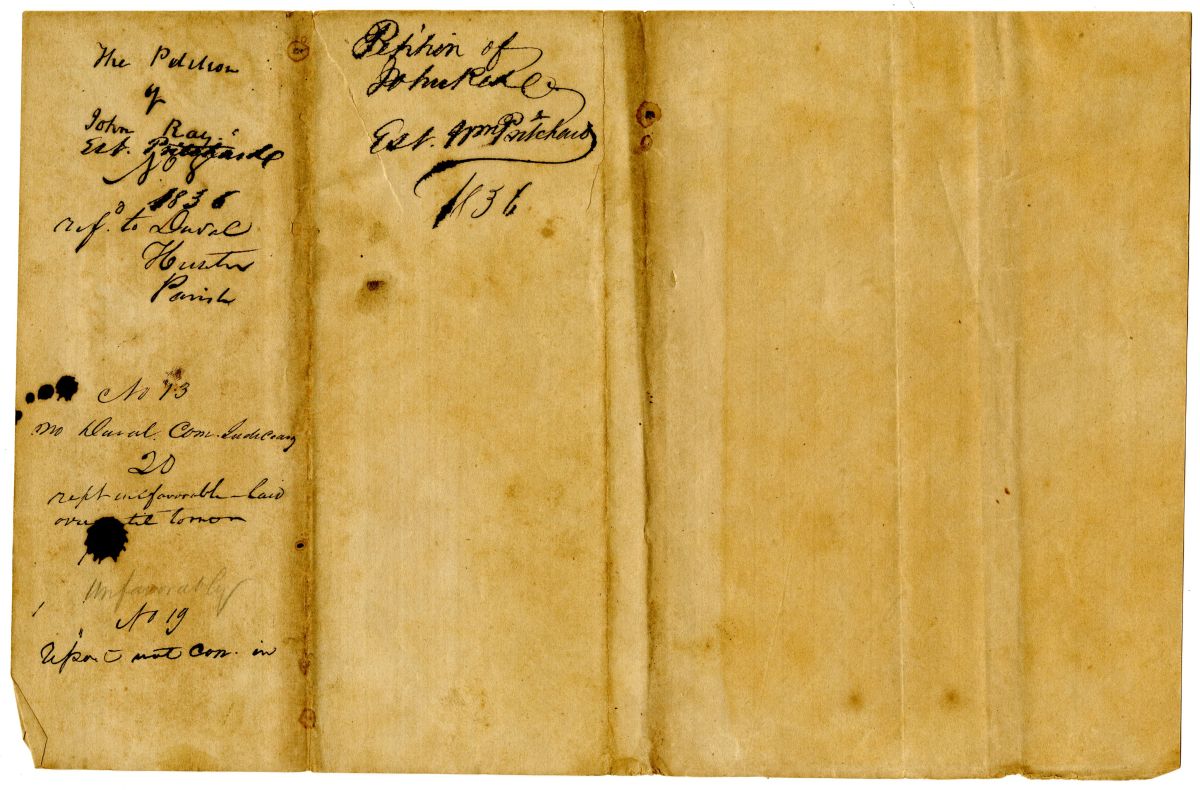 The Petition
of
John Ray.
Est. Pritchard
1836
refd. to Duval
Hunter
Parish
No 73
mo Duval. Com. Judiciary
20
rept unfavorable - laid
over til tomor
Unfavorably
No 19
Report not con. in
Petition of
John
Est. Wm Pritchard
1836